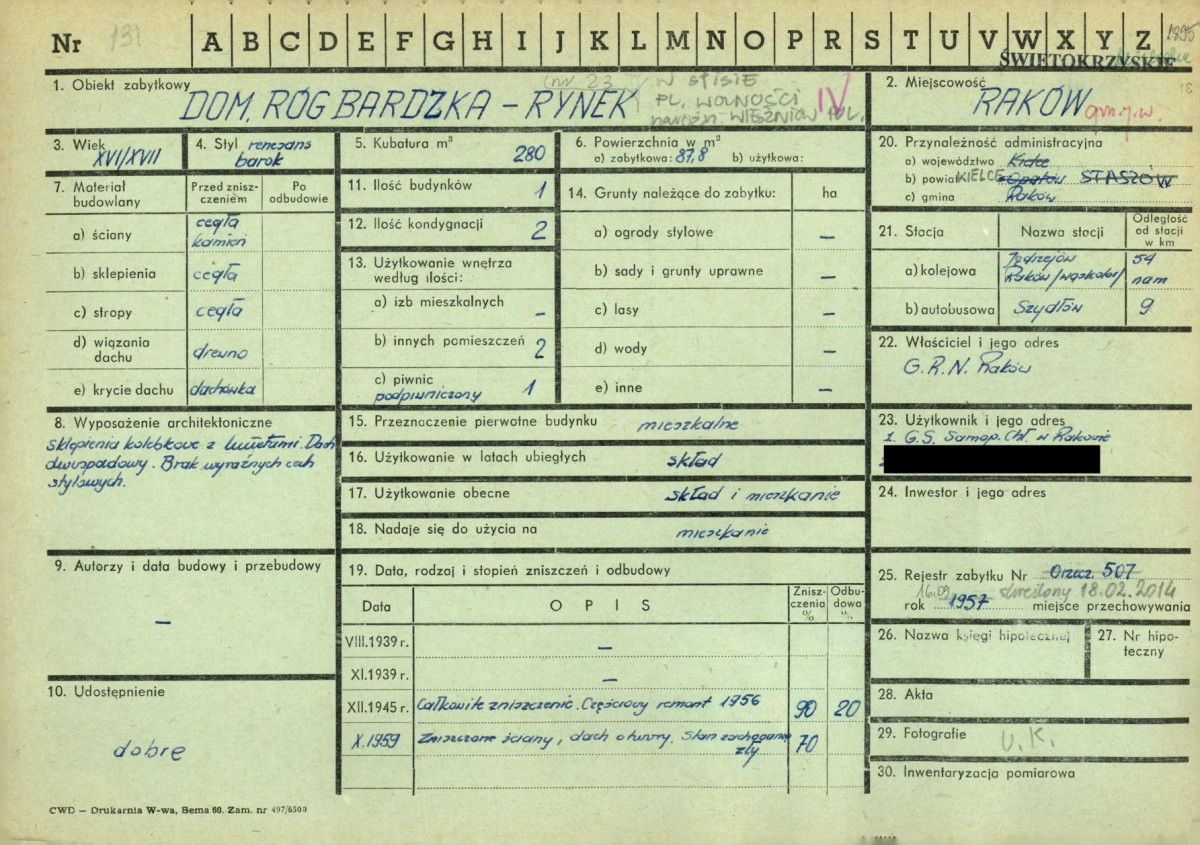 Nr 131 A B C D E F G H I J K L M N O P R S T U V W X Y Z 1895
ŚWIĘTOKRZYSKIE
1. Obiekt zabytkowy
DOM, RÓG BARDZKA – RYNEK
(nr 23
W SPISIE
PL. WOLNOŚCI
WIĘŹNIÓW POL.
IV
2. Miejscowość
RAKÓW
gm. j.w.
3. Wiek
XVI/XVII
4. Styl renesans
barok
5. Kubatura m³
280
6. Powierzchnia w m²
a) zabytkowa: 87,8 b) użytkowa:
20. Przynależność administracyjna
a) województwo Kielce
b) powiat KIELCE Opatów STASZÓW
c) gmina Raków
7. Materiał budowlany
Przed zniszczeniem
Po odbudowie
a) ściany
cegła
kamień
b) sklepienia
cegła
c) stropy
cegła
d) wiązania dachu
drewno
e) krycie dachu
dachówka
11. Ilość budynków
1
12. Ilość kondygnacji
2
13. Użytkowanie wnętrza
według ilości:
a) izb mieszkalnych
–
b) innych pomieszczeń
2
c) piwnic
podpiwniczony
1
14. Grunty należące do zabytku:
ha
a) ogrody stylowe –
b) sady i grunty uprawne –
c) lasy –
d) wody –
e) inne –
21. Stacja
Nazwa stacji
Odległość
od stacji
w km
a) kolejowa
Jędrzejów 54
Raków /wąskotor/ nam
b) autobusowa Szydłów 9
22. Właściciel i jego adres
G.R.N. Raków
8. Wyposażenie architektoniczne
Sklepienia kolebkowe z lunetami. Dach
dwuspadowy. Brak wyraźnych cech
stylowych.
15. Przeznaczenie pierwotne budynku mieszkalne
16. Użytkowanie w latach ubiegłych skład
17. Użytkowanie obecne skład i mieszkanie
18. Nadaje się do użycia na mieszkanie
23. Użytkownik i jego adres
1. G.S. Samop. Chł. w Rakowie
24. Inwestor i jego adres
9. Autorzy i data budowy i przebudowy
–
19. Data, rodzaj i stopień zniszczeń i odbudowy
Data
OPIS
Zniszczenia %
Odbudowa %
VIII.1939 r. –
XI.1939 r. –
XII.1945 r. Całkowite zniszczenie. Częściowy remont 1956 90 20
X.1959 Zniszczone ściany, dach otwory. Stan zachowania
zły 70
25. Rejestr zabytku Nr Orzecz. 507
16.09 skreślony 18.02.2014
rok 1957 miejsce przechowywania
26. Nazwa księgi hipotecznej
27. Nr hipoteczny
10. Udostępnienie
dobre
28. Akta
29. Fotografie U.K.
30. Inwentaryzacja pomiarowa
CWD – Drukarnia W-wa, Bema 60. Zam. nr 497/6500